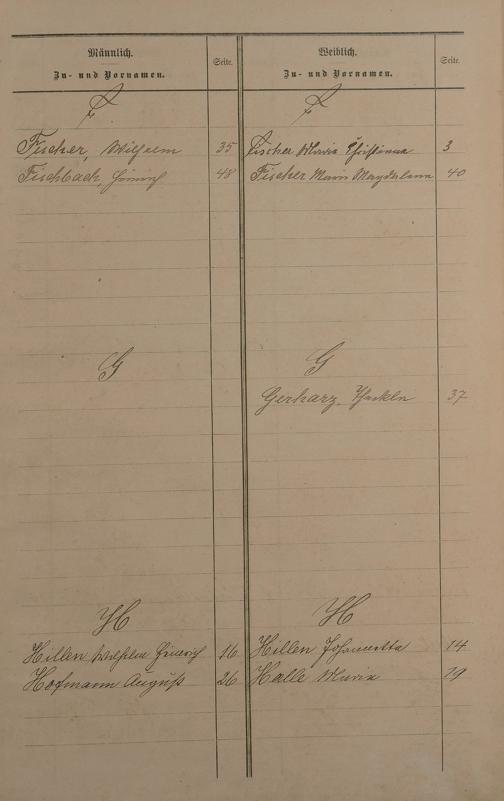 Männlich.
Zu- und Vornamen.
Seite.
F
Fischer, Wilhelm 35
Fischbach, Heinrich 48
G
H
Hillen Wilhelm Heinrich 16
Hofmann August 26
Weiblich.
Zu- und Vornamen.
Seite.
F
Fischer Maria Christiana 3
Fischer Maria Magdalena 40
G
Gerharz, 37
H
Hillen Johannetta 14
Halle Maria 19